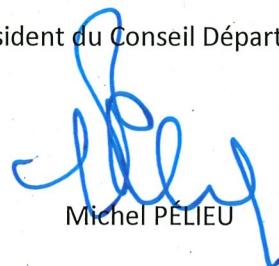 sident du Conseil Départ
Michel PÉLIEU